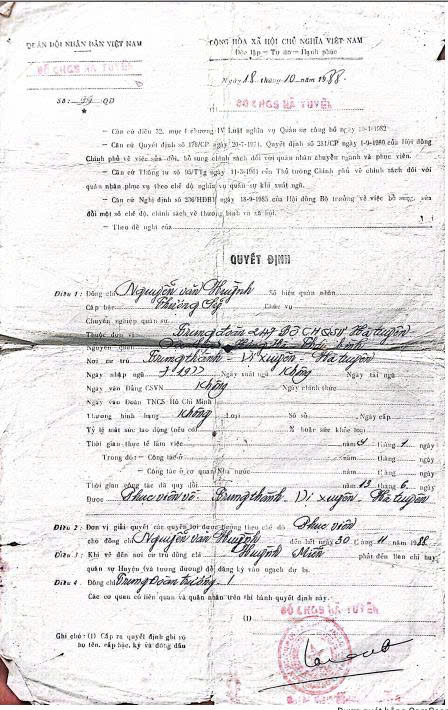 QUÂN ĐỘI NHÂN DÂN VIỆT NAM
CỘNG HÒA XÃ HỘI CHỦ NGHĨA VIỆT NAM
Độc lập - Tự do - Hạnh phúc
BỘ CHQS HÀ TUYÊN
Ngày 18 tháng 10 năm 1988
Số: 99 QĐ
BỘ CHQS HÀ TUYÊN
— Căn cứ điều 32, mục 1 chương IV Luật nghĩa vụ Quân sự công bố ngày 10-1-1982
— Căn cứ Quyết định số 178/CP ngày 20-7-1974, Quyết định số 281/CP ngày 1-9-1980 của Hội đồng
Chính phủ về việc sửa đổi, bổ sung chính sách đối với quân nhân chuyển ngành và phục viên.
— Căn cứ Thông tư số 95/TTg ngày 11-3-1961 của Thủ tướng Chính phủ về chính sách đối với
quân nhân phục vụ theo chế độ nghĩa vụ quân sự khi xuất ngũ.
— Căn cứ Nghị định số 236/HĐBT ngày 18-9-1985 của Hội đồng Bộ trưởng về việc bổ sung, sửa
đổi một số chế độ, chính sách về thương binh và xã hội.
— Theo đề nghị của
QUYẾT ĐỊNH
Điều 1: Đồng chí Nguyễn văn Huỳnh Số hiệu quân nhân
Cấp bậc Thượng Sỹ Chức vụ
Chuyên nghiệp quân sự
Thuộc đơn vị Trung đoàn 247 Bộ CHQSH Hà tuyên
Nguyên quán
Nơi cư trú Trung thành - Vị xuyên - Hà tuyên
Ngày nhập ngũ 7/1977 Ngày xuất ngũ Không Ngày tái ngũ
Ngày vào Đảng CSVN Không Ngày chính thức
Ngày vào Đoàn TNCS Hồ Chí Minh
Thương binh hạng Không Loại Số sổ Ngày cấp
Tỷ lệ mất sức lao động (nếu có) % hoặc sức khỏe loại
Thời gian thực tế làm việc năm tháng ngày
Trong đó: — Công tác ở năm tháng
— Công tác ở cơ quan Nhà nước năm tháng
Thời gian công tác đã quy đổi năm 13 tháng 6 ngày
Được Phục viên về: Trung thành - Vị xuyên - Hà tuyên
Điều 2: Đơn vị giải quyết các quyền lợi được hưởng theo chế độ Phục viên
cho đồng chí Nguyễn văn Huỳnh đến hết ngày 30 tháng 11 năm 1988
Điều 3: Khi về đến nơi cư trú đồng chí Huỳnh phải đến Ban chỉ huy
quân sự Huyện (và tương đương) để đăng ký vào ngạch dự bị.
Điều 4. Đồng chí Trung đoàn trưởng
Các cơ quan có liên quan và quân nhân trên thi hành quyết định này.
BỘ CHQS HÀ TUYÊN
(1)
Ghi chú: (1) Cấp ra quyết định ghi rõ
họ tên, cấp bậc, ký và đóng dấu
BỘ CHQS HÀ TUYÊN